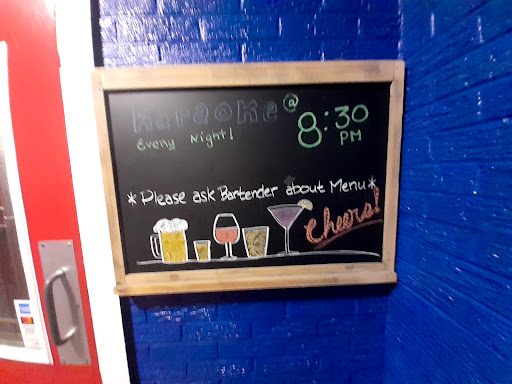 Karaoke @ 8:30 PM
Every Night!
*Please ask Bartender about Menu*
Cheers!